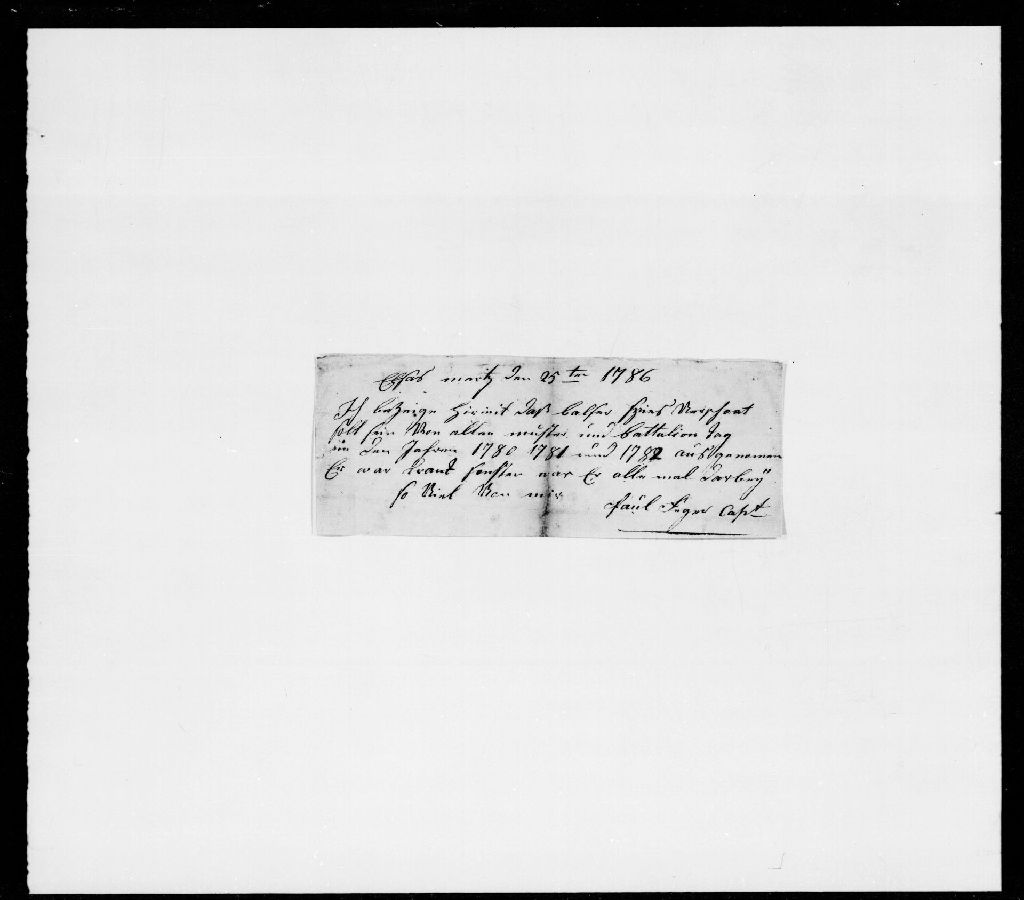 mertz den 25 ten 1786
Ich bezeige Hirmit daß balser Verschont
solt sein Von allen muster und battalion tag
in den Jahren 1780 1781 und 1782 ausgenomen
Er war krank sonsten war Er alle mal darbey
so Viel Von mir
Paul Capt